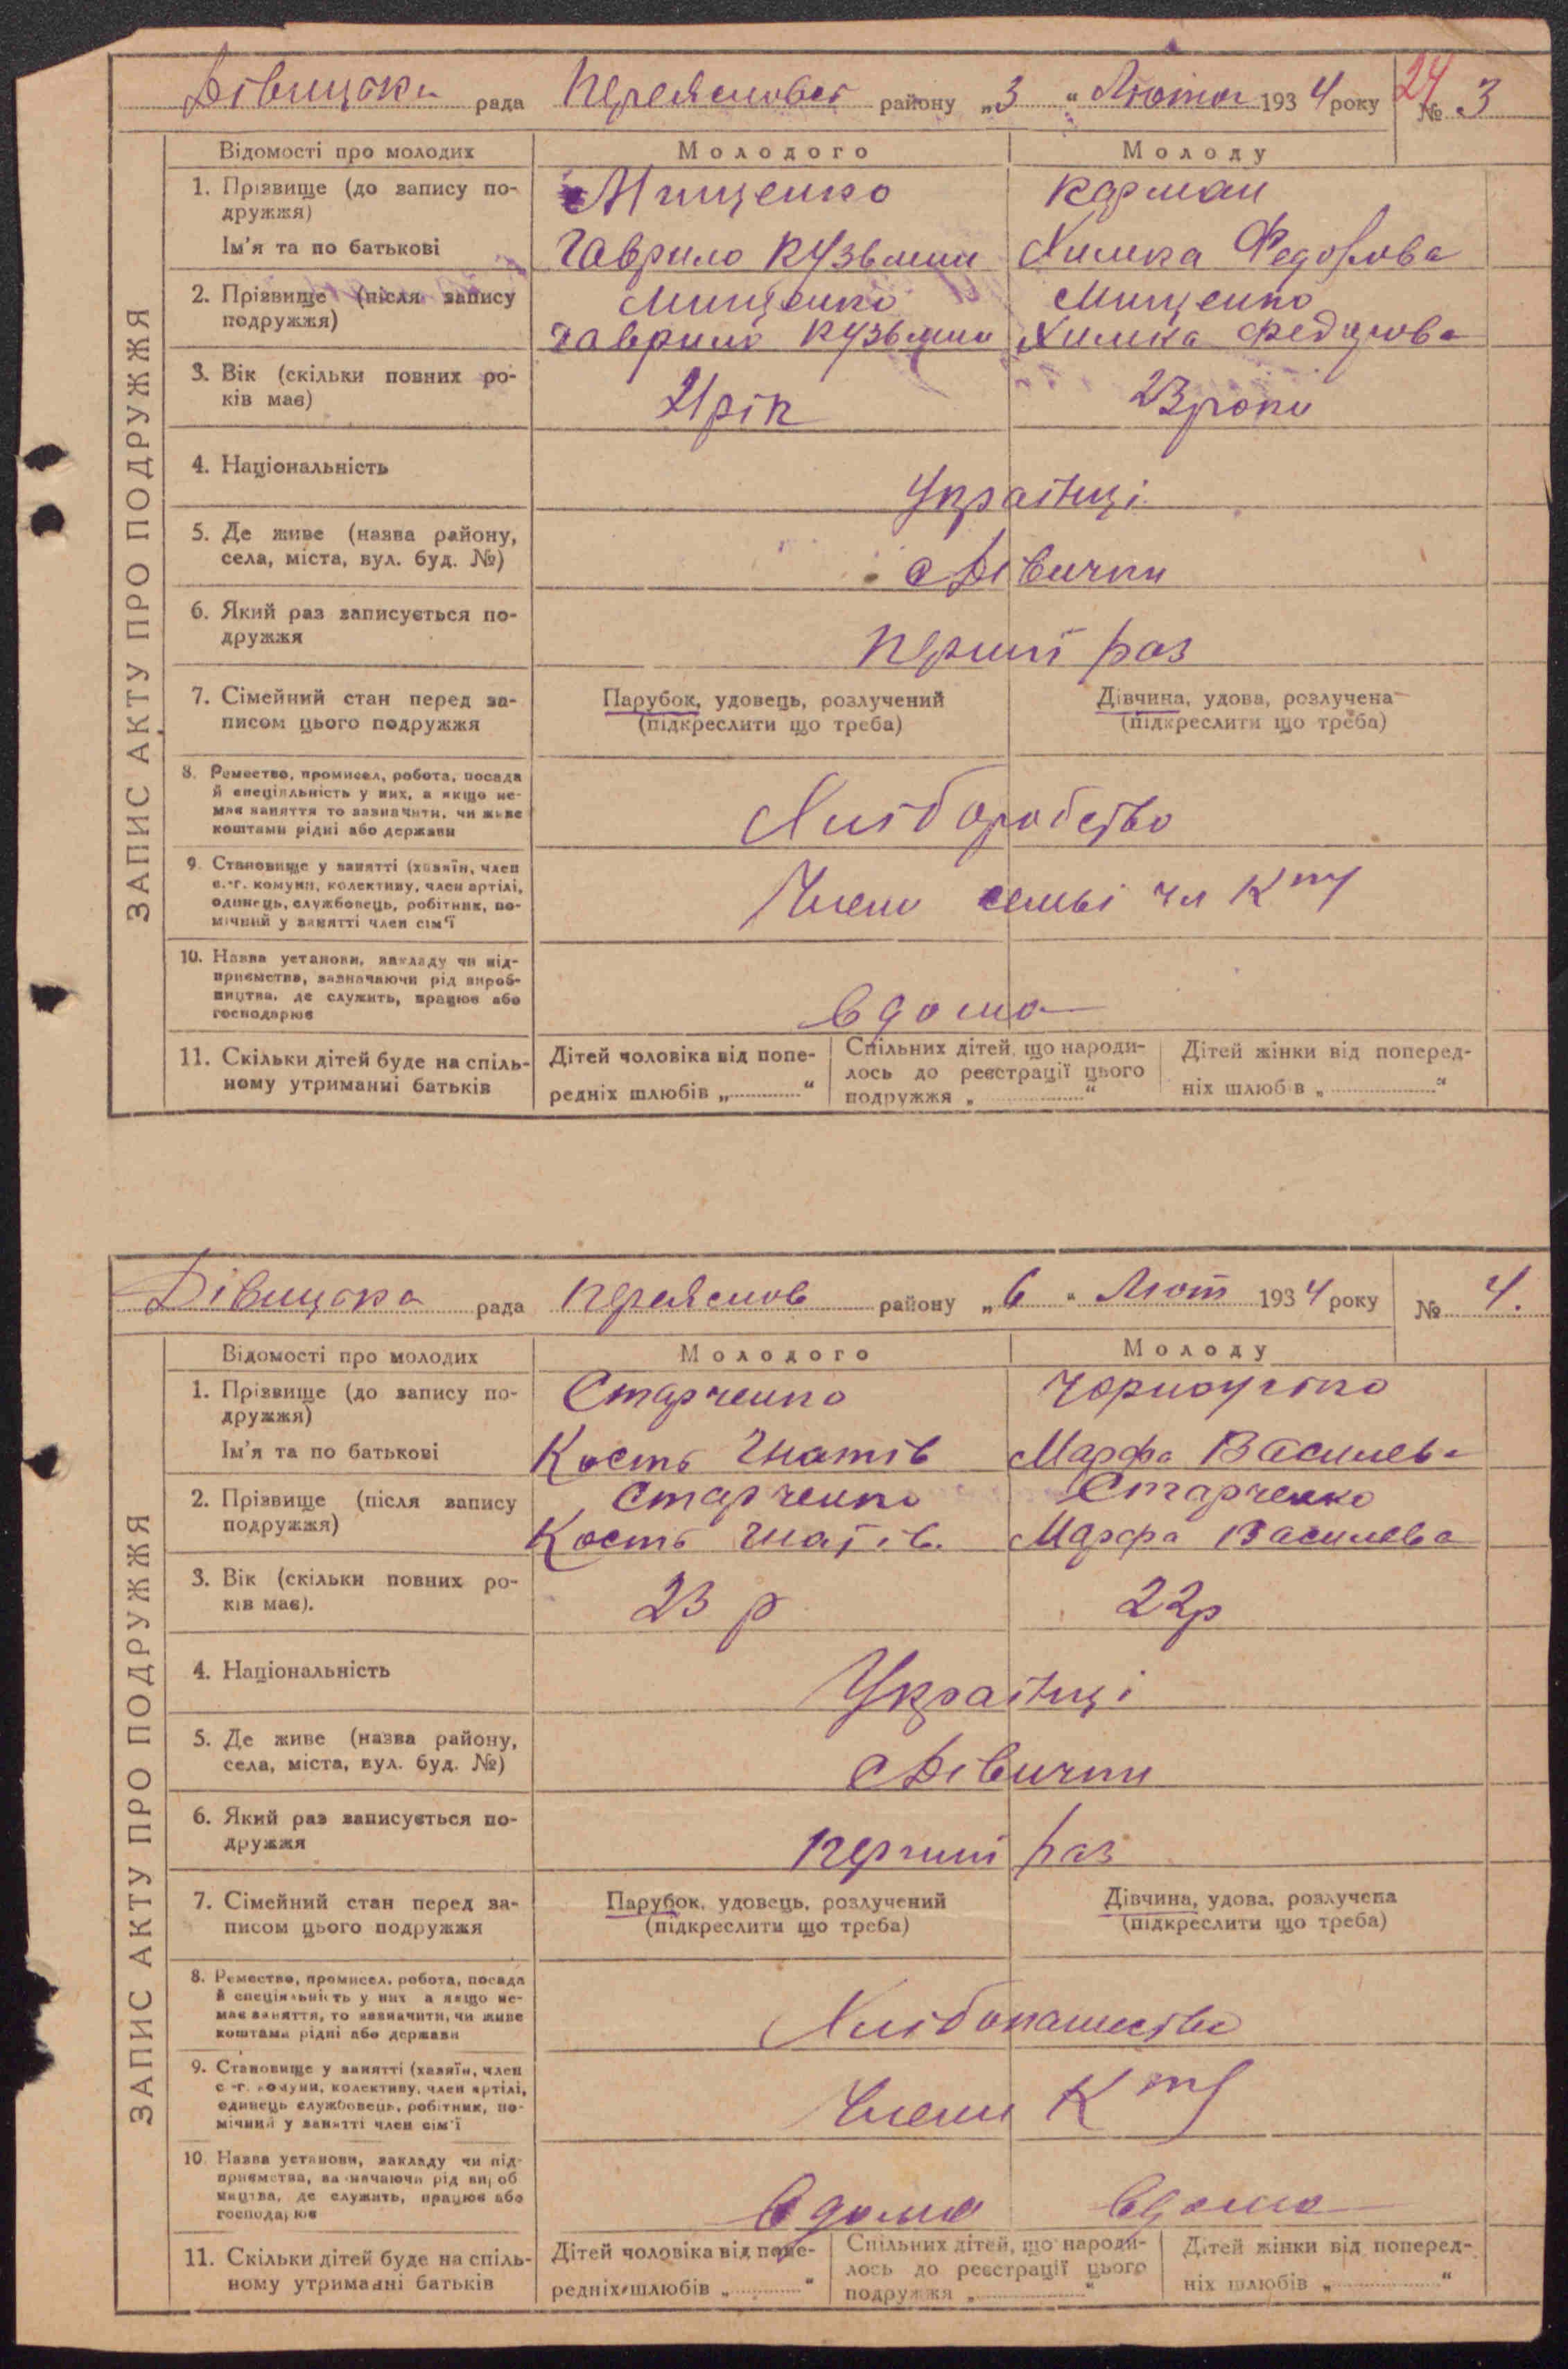 Дівицька рада Переяславсь району „3“ Лютого 1934 року 24 № 3
ЗАПИС АКТУ ПРО ПОДРУЖЖЯ
Відомості про молодих Молодого Молоду
1. Прізвище (до запису по- Мищенко Карман
дружжя)
Ім'я та по батькові Гаврило Кузьмин Химка Федорова
2. Прізвище (після запису Мищенко Мищенко
подружжя) Гаврило Кузьмин Химка Федорова
3. Вік (скільки повних ро- 21 рік 23 роки
ків має)
4. Національність Українці
5. Де живе (назва району,
села, міста, вул. буд. №) с Дівички
6. Який раз записується по-
дружжя перший раз
7. Сімейний стан перед за- Парубок, удовець, розлучений Дівчина, удова, розлучена
писом цього подружжя (підкреслити що треба) (підкреслити що треба)
8. Ремество, промисел, робота, посада
й спеціяльність у них, а якщо не-
має заняття то зазначити, чи живе Хліборобство
коштами рідні або держави
9. Становище у занятті (хазяїн, член
с.-г. комуни, колективу, член артілі, Члени семьі чл Кту
одинець, службовець, робітник, по-
мічний у занятті член сім'ї
10. Назва установи, закладу чи під-
приємства, зазначаючи рід вироб-
ництва, де служить, працює або
господарює вдома
11. Скільки дітей буде на спіль- Дітей чоловіка від попе- Спільних дітей, що народи- Дітей жінки від поперед-
ному утриманні батьків редніх шлюбів „ “ лось до реєстрації цього ніх шлюбів „ “
подружжя „ “
Дівицька рада Переяслов району „6“ Лют 1934 року № 4.
ЗАПИС АКТУ ПРО ПОДРУЖЖЯ
Відомості про молодих Молодого Молоду
1. Прізвище (до запису по- Старченко
дружжя)
Ім'я та по батькові Кость Гнатів Марфа Василева
2. Прізвище (після запису Старченко Старченко
подружжя) Кость Гнатів. Марфа Василева
3. Вік (скільки повних ро- 23 р 22р
ків має).
4. Національність Українці
5. Де живе (назва району,
села, міста, вул. буд. №) с Дівички
6. Який раз записується по-
дружжя перший раз
7. Сімейний стан перед за- Парубок, удовець, розлучений Дівчина, удова, розлучена
писом цього подружжя (підкреслити що треба) (підкреслити що треба)
8. Ремество, промисел, робота, посада
й спеціяльність у них а якщо не-
має заняття, то зазначити, чи живе Хлібопашество
коштами рідні або держави
9. Становище у занятті (хазяїн, член
с.-г. комуни, колективу, член артілі, Члени Кту
одинець службовець, робітник, по-
мічний у занятті член сім'ї
10. Назва установи, закладу чи під-
приємства, зазначаючи рід вироб
ництва, де служить, працює або
господарює вдома вдома
11. Скільки дітей буде на спіль- Дітей чоловіка від попе- Спільних дітей, що народи- Дітей жінки від поперед-
ному утриманні батьків редніх шлюбів „ “ лось до реєстрації цього ніх шлюбів „ “
подружжя „ “